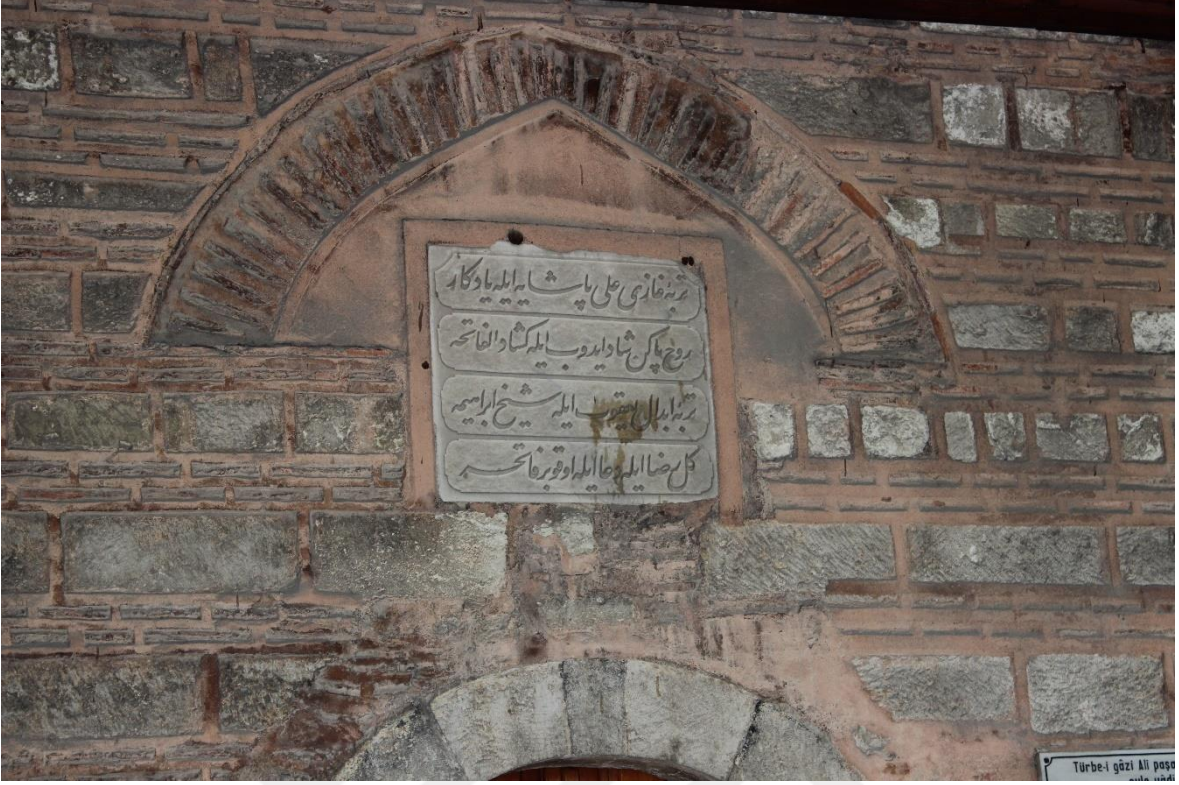 تربهٔ غازی علی پاشایه ایله یادكار
روح پاكن شاد ایدوب ایله كشاد الفاتحه
تربهٔ ابدال یعقوب ایله شیخ ابراهیمه
كل رضا ایله دعا ایله اوقو بر فاتحه
Türbe-i gâzi Ali paşa